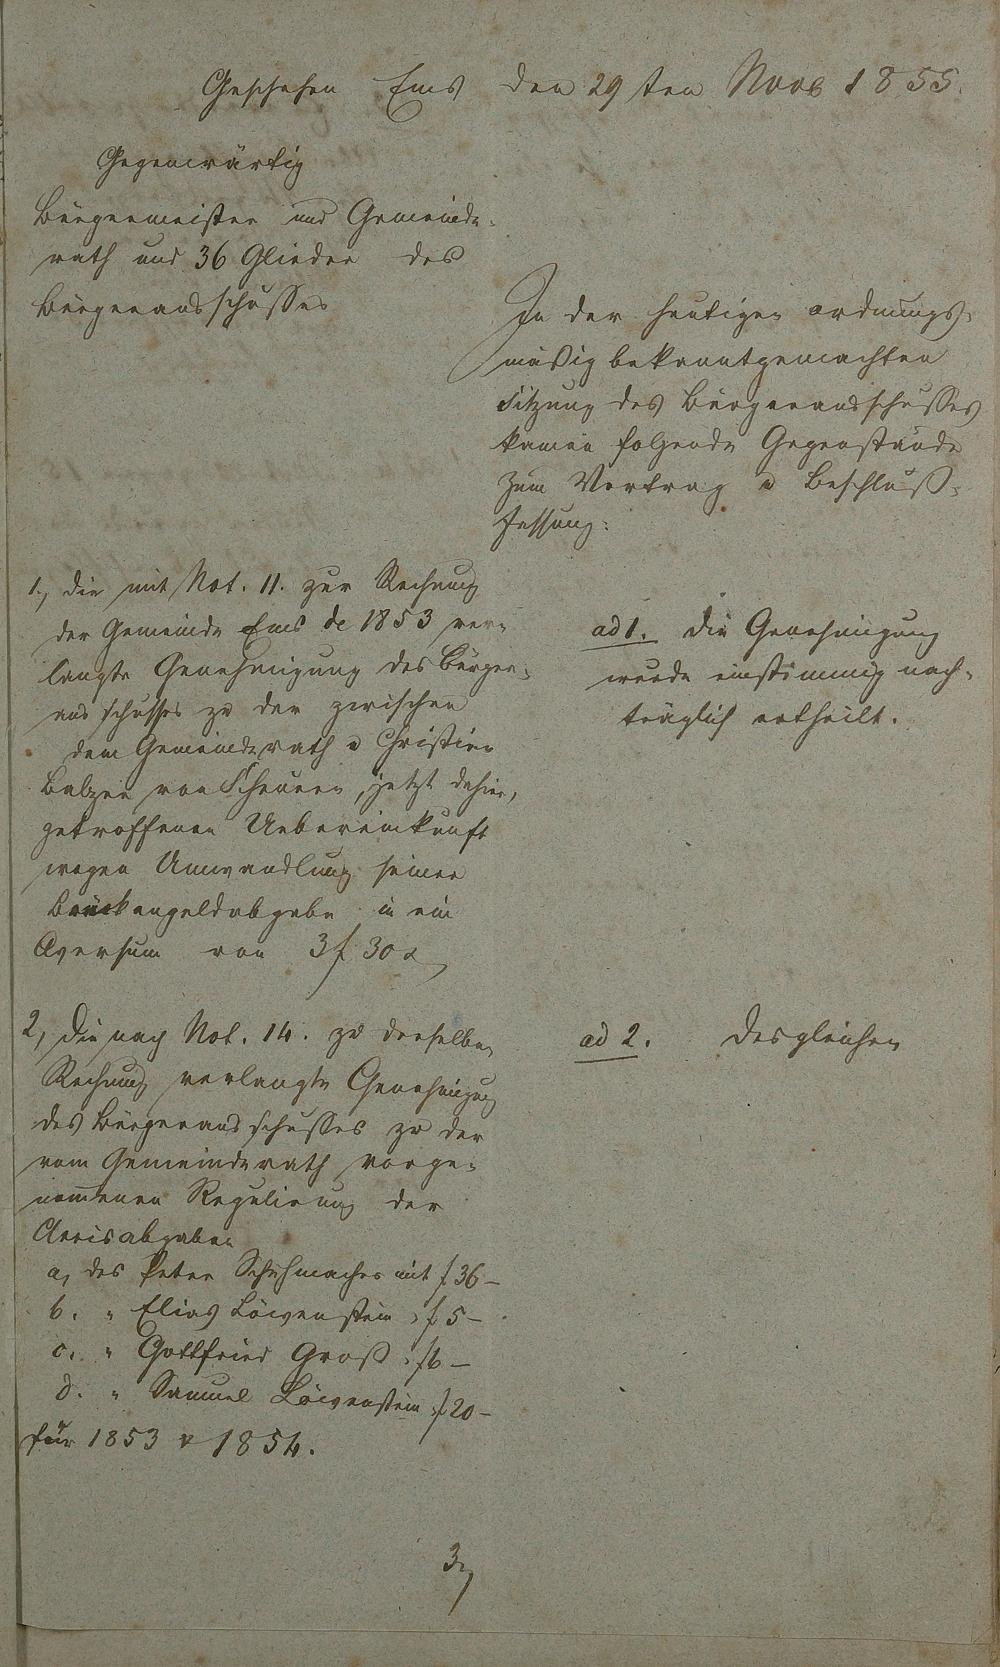 Geschehen Ems den 29ten Novb 1855.
Gegenwärtig
Bürgermeister und Gemeinde-
rath und 36 Glieder des
Bürgerausschusses
In der heutigen ordnungs-
mäßig bekanntgemachten
Sitzung des Bürgerausschusses
kamen folgende Gegenstände
zum Vortrag u Beschluß-
fassung:
1., die mit Not. 11. zur Rechnung
der Gemeinde Ems de 1853 ver-
langte Genehmigung des Bürger-
ausschusses zu der zwischen
dem Gemeinderath u Christian
Balzer von Scheuern, jetzt dahier,
getroffenen Uebereinkunft
wegen Umwandlung seiner
Brückengeldabgabe in ein
Aversum von 3 f 30 x
ad 1. die Genehmigung
wurde einstimmig nach-
träglich ertheilt.
2, die nach Not. 14. zu derselben
Rechnung verlangte Genehmigung
des Bürgerausschusses zu der
vom Gemeinderath vorge-
nommenen Regulirung der
Accisabgaben
a, des Peter Schuhmacher mit f 36 –
b. " Elias Löwenstein " f 5 –
c. " Gottfried Groß " f 6 –
d. " Samuel Löwenstein " f 20 –
für 1853 & 1854.
ad 2. desgleichen
3,